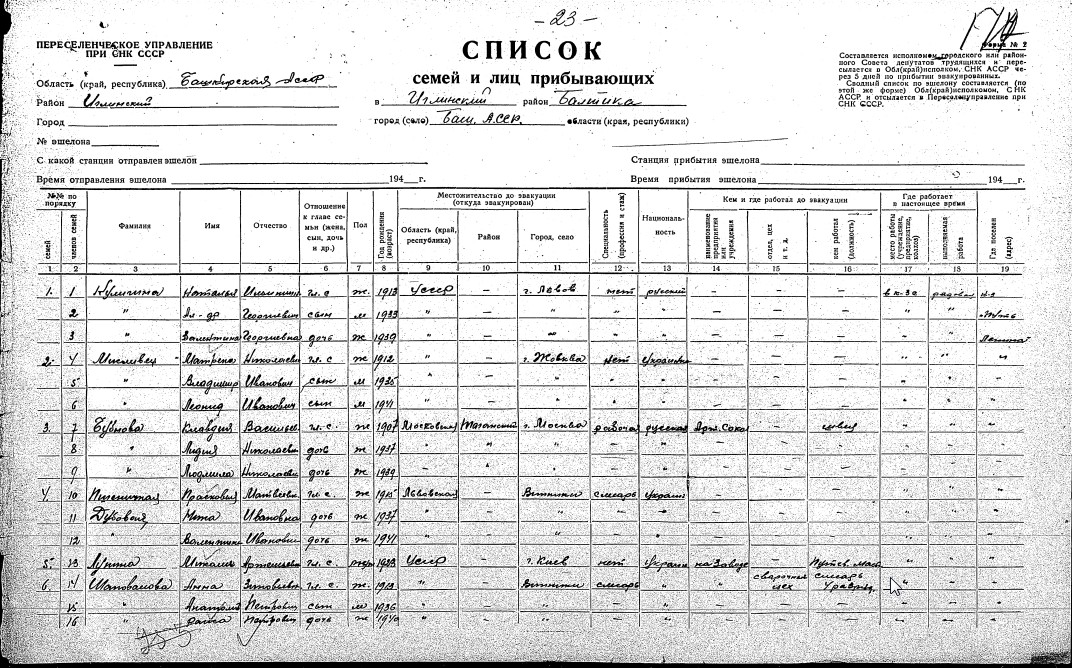 -23-
ПЕРЕСЕЛЕНЧЕСКОЕ УПРАВЛЕНИЕ
ПРИ СНК СССР
Форма № 2
СПИСОК
семей и лиц прибывающих
Составляется исполкомом городского или район-
ного Совета депутатов трудящихся и пере-
сылается в Обл(край)исполком, СНК АССР че-
рез 5 дней по прибытии эвакуированных.
Сводный список по эшелону составляется (по
этой же форме) Обл(край)исполкомом, СНК
АССР и отсылается в Переселенуправление при
СНК СССР.
Область (край, республика) Башкирская Асср
Район Иглинский
в Иглинский район Балтика
Город
город (село) Баш. АССР. области (края, республики)
№ эшелона
С какой станции отправлен эшелон
Станция прибытия эшелона
Время отправления эшелона 194 г.
Время прибытия эшелона 194 г.
№№ по порядку
семей
членов семей
Фамилия
Имя
Отчество
Отношение к главе семьи (жена, сын, дочь и др.)
Пол
Год рождения (возраст)
Местожительство до эвакуации (откуда эвакуирован)
Область (край, республика)
Район
Город, село
Специальность (профессия и стаж)
Националь-ность
Кем и где работал до эвакуации
наименование предприятия или учреждения
отдел, цех и т. д.
кем работал (должность)
Где работает в настоящее время
место работы (учреждение, предприятие, колхоз)
выполняемая работа
Где поселен (адрес)
1 2 3 4 5 6 7 8 9 10 11 12 13 14 15 16 17 18 19
1. 1 Наталья гл. с ж. 1913 УССР — г. Львов нет русский — — — в к-зе рядовая
2 " Ал-др Георгиевич сын м 1933 " — " — " — — — " " Путь
3 " Валентина Георгиевна дочь ж 1939 " — " — " — — — " " Ленина
2. 4 Матрена Николаевн гл. с ж 1912 " — г. Жовква нет Украинка — — — " " "
5 " Владимир Иванович сын м 1935 " — " — " — — — " " "
6 " Леонид Иванович сын м 1941 " — " — " — — — " " "
3. 7 Бубнова Клавдия Васильев гл. с. ж 1907 Московская г. Москва рабочая русская — швея " " "
8 " Лидия Николаевн дочь ж 1937 " " " — " — — — " " "
9 " Людмила Николаевн дочь ж 1939 — " — — — — — — " " "
4 10 Прасковья Матвеевн гл. с. ж 1915 Львовская — Винники слесарь Украин — — — " " "
11 Ивановна дочь ж 1937 " — " — " — — — " " "
12 " Валентина Иванович дочь ж 1941 — — — — — — — — " " "
5. 13 гл. с. 1923 УССР — г. Киев нет Украин на Заводе — " " "
6. 14 Шаповалова Анна гл. с. ж. 1913 " — Винники слесарь " " сварочный цех слесарь " " "
15 " Анатолий Петрович сын м 1936 " — " — " — — — " " "
16 " Петрович дочь ж 1940 " — " — " — — — " " "